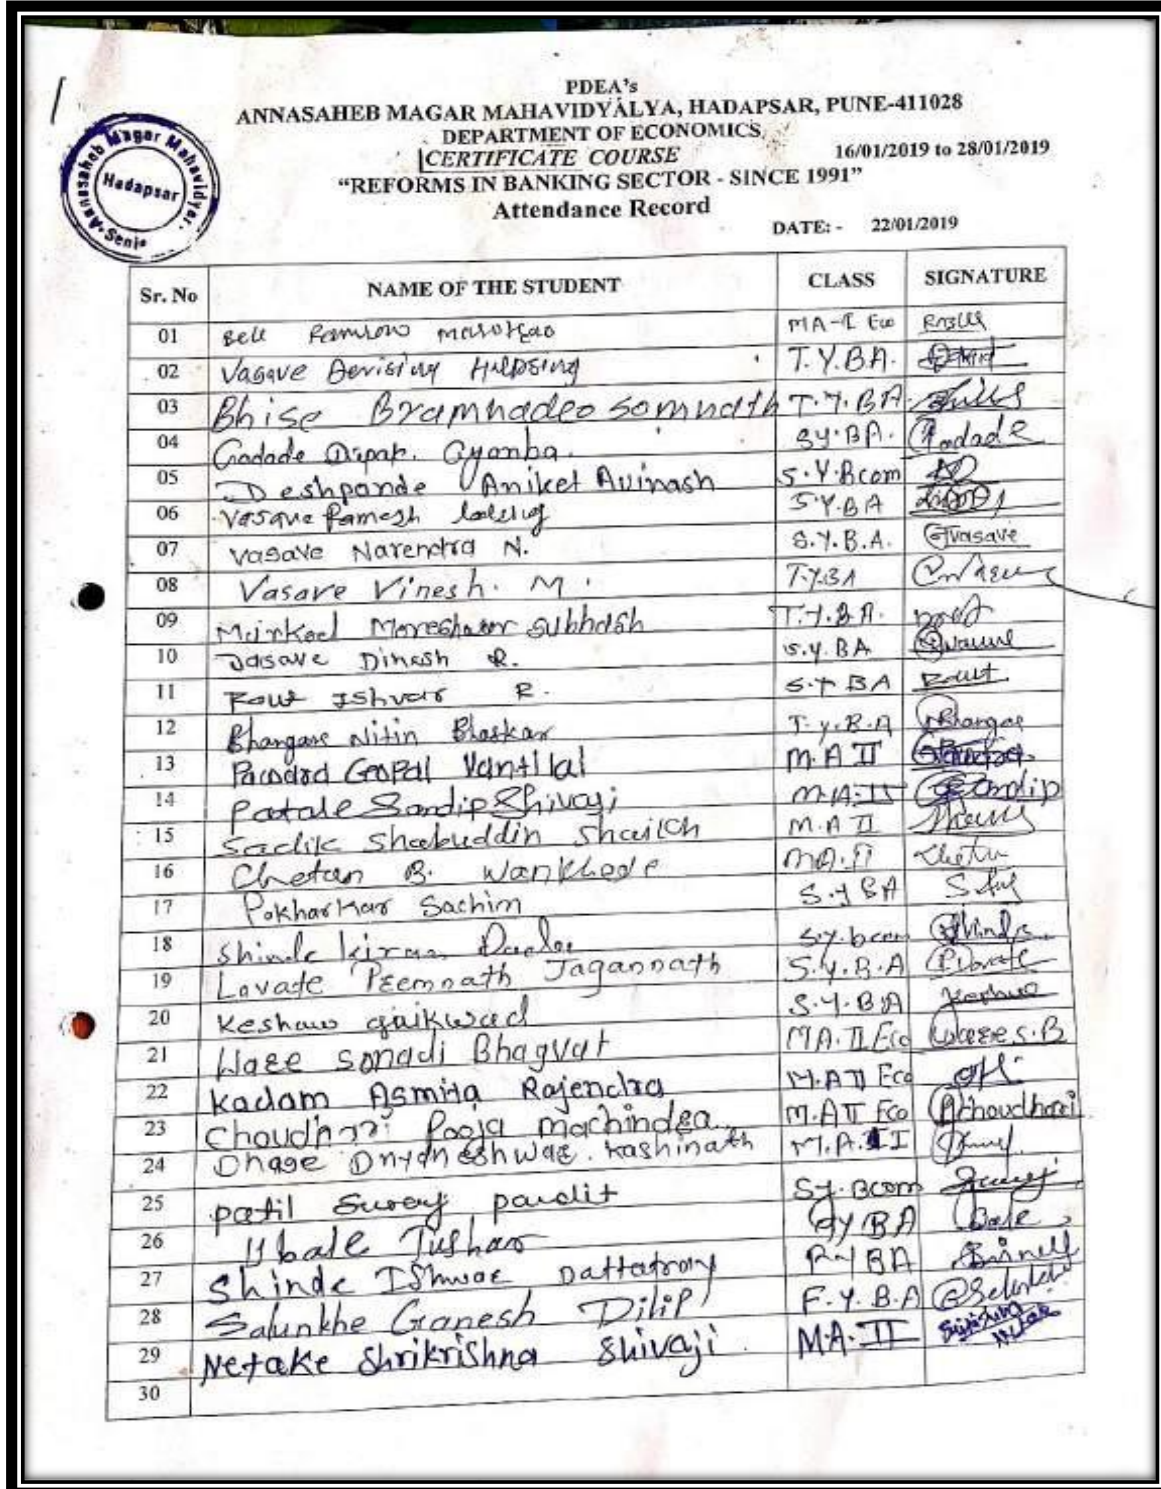 PDEA's
ANNASAHEB MAGAR MAHAVIDYALYA, HADAPSAR, PUNE-411028
DEPARTMENT OF ECONOMICS
CERTIFICATE COURSE 16/01/2019 to 28/01/2019
"REFORMS IN BANKING SECTOR - SINCE 1991"
Attendance Record
DATE: - 22/01/2019
Annasaheb Magar Mahavidyal
Hadapsar
Sr. No NAME OF THE STUDENT CLASS SIGNATURE
01 MA-I Eco
02 Vasave T.Y.BA.
03 Bhise Bramhadeo Somnath T.Y.BA
04 Gadade Dipak. Gyanba. SY.BA. Gadade
05 Deshpande Aniket Avinash S.Y.Bcom
06 Vasave Ramesh S.Y.BA
07 Vasave Narendra N. S.Y.B.A. Vasave
08 Vasave Vinesh. M. T.Y.BA
09 Moreshwar Subhash T.Y.B.A.
10 Vasave Dinesh R. S.Y.BA
11 Raut Ishvar R. S.Y BA Raut
12 Bhangare Nitin Bhaskar T.Y.B.A Bhangare
13 Gopal Vantilal M.A II
14 Patale Sandip Shivaji M.A.II Sandip
15 Sadik Shabuddin Shaikh M.A II
16 Chetan B. Wankhode MA.II Chetan
17 Pokharkar Sachin S.Y BA
18 Shinde Kiran S.Y.bcom Shinde
19 Lavate Peemnath Jagannath S.Y.B.A P.Lavate
20 Keshaw gaikwad S.Y.B.A Keshav
21 Wage Sonadi Bhagvat MA.II Eco Wagee S.B
22 Kadam Asmita Rajendra M.A II Eco
23 Choudhari Pooja Machindra M.A II Eco Achoudhari
24 Dhage Dnyaneshwar. Kashinath M.A.II
25 Patil Suraj pandit SY.Bcom
26 Ubale Tushar BA
27 Shinde Ishwar Dattatray BA
28 Salunkhe Ganesh Dilip F.Y.B.A
29 Netake Shrikrishna Shivaji. MA.II
30